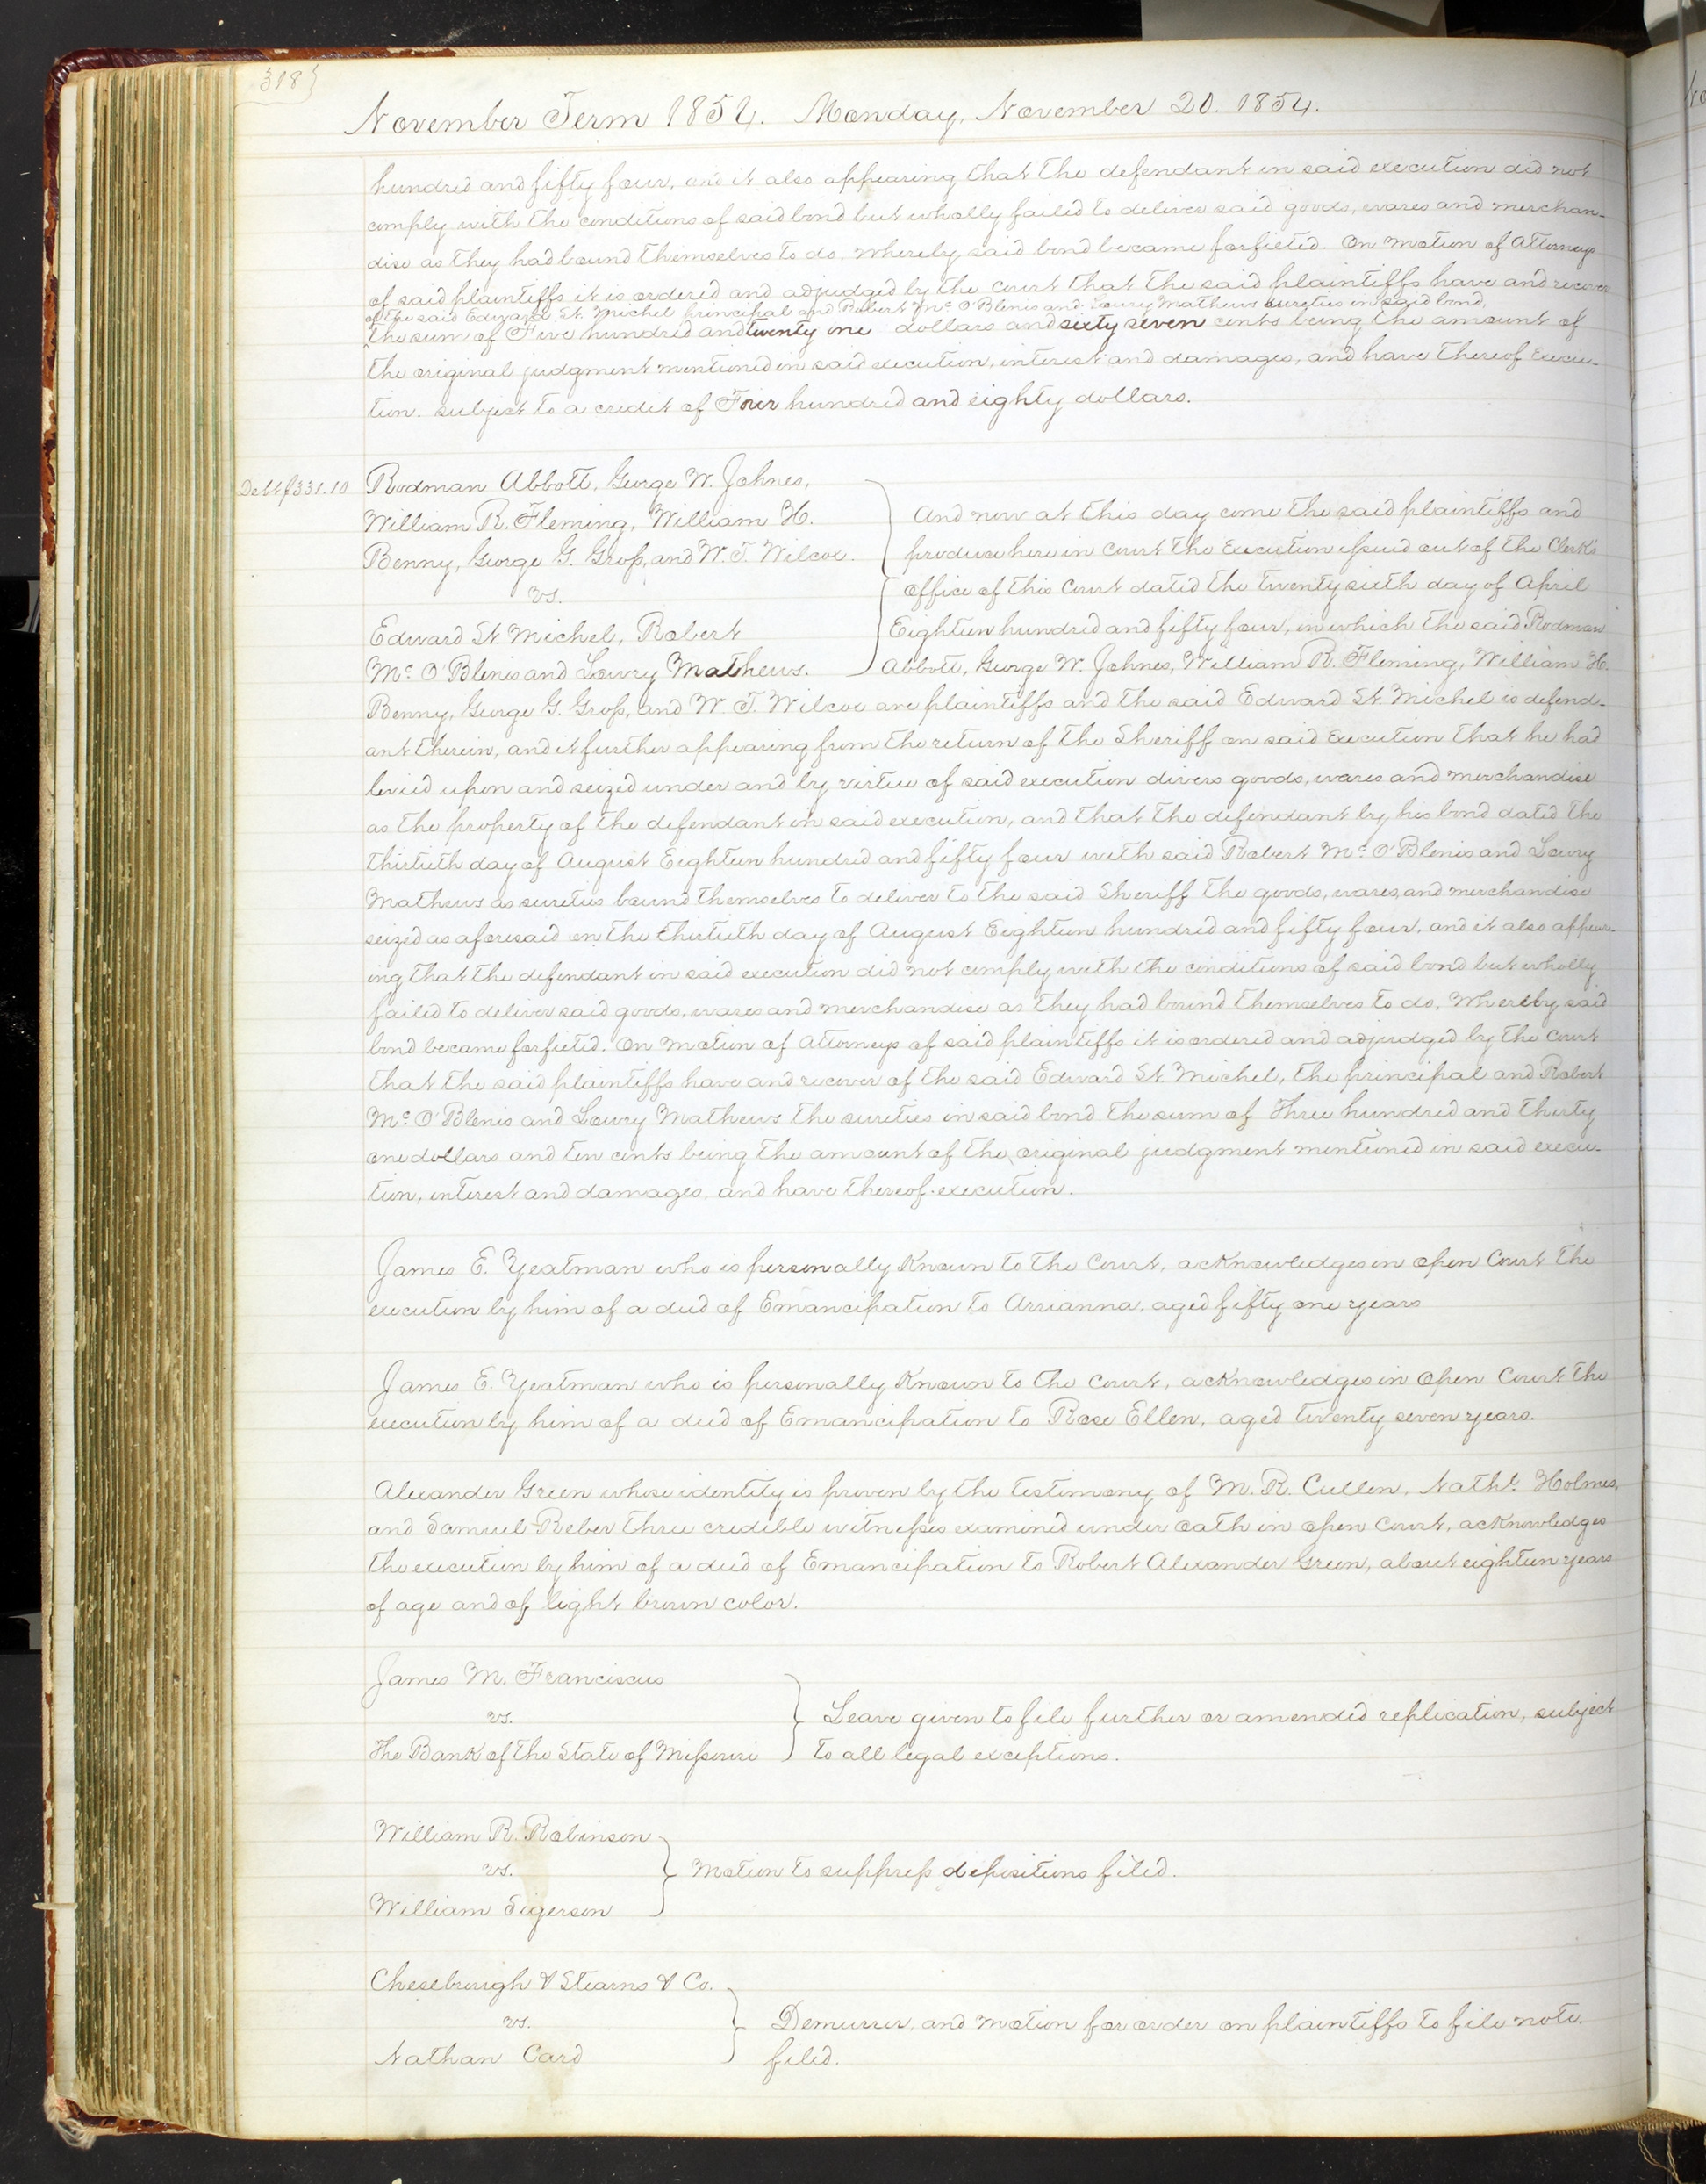 318
November Term 1854. Monday, November 20. 1854.
hundred and fifty four, and it also appearing that the defendant in said execution did not
comply with the conditions of said bond but wholly failed to deliver said goods, wares and merchan-
dise as they had bound themselves to do, whereby said bond became forfieted. On motion of Attorneys
of said plaintiffs it is ordered and adjudged by the Court that the said plaintiffs have and recover
of the said Edward St. Michel principal and Robert Mc. O'Blenis and Lowry Mathews sureties in said bond,
the sum of Five hundred and twenty one dollars and sixty seven cents being the amount of
the original judgment mentioned in said execution, interest and damages, and have thereof Execu-
tion. subject to a credit of Four hundred and eighty dollars.
Debt $331.10
Rodman Abbott, George W. Johnes,
William R. Fleming, William H.
Benny, George G. Groſs, and W. T. Wilcox.
vs.
Edward St. Michel, Robert
Mc. O'Blenis and Lowry Mathews.
And now at this day come the said plaintiffs and
produce here in Court the Execution iſsued out of the Clerk's
office of this Court dated the twenty sixth day of April
Eighteen hundred and fifty four, in which the said Rodman
Abbott, George W. Johnes, William R. Fleming, William H.
Benny, George G. Groſs, and W. T. Wilcox are plaintiffs and the said Edward St. Michel is defend-
ant therein, and it further appearing from the return of the Sheriff on said Execution that he had
levied upon and seized under and by virtue of said execution divers goods, wares and merchandise
as the property of the defendant in said execution, and that the defendant by his bond dated the
thirtieth day of August Eighteen hundred and fifty four with said Robert Mc. O'Blenis and Lowry
Mathews as sureties bound themselves to deliver to the said Sheriff the goods, wares, and merchandise
seized as aforesaid on the thirtieth day of August Eighteen hundred and fifty four, and it also appear-
ing that the defendant in said execution did not comply with the conditions of said bond but wholly
failed to deliver said goods, wares and merchandise as they had bound themselves to do, Whereby said
bond became forfieted. On motion of Attorneys of said plaintiffs it is ordered and adjudged by the Court
that the said plaintiffs have and recover of the said Edward St. Michel, the principal and Robert
Mc. O'Blenis and Lowry Mathews the sureties in said bond the sum of Three hundred and thirty
one dollars and ten cents being the amount of the original judgment mentioned in said execu-
tion, interest and damages, and have thereof execution.
James E. Yeatman who is personally Known to the Court, acknowledges in open Court the
execution by him of a deed of Emancipation to Arrianna, aged fifty one years
James E. Yeatman who is personally Known to the Court, acknowledges in Open Court the
execution by him of a deed of Emancipation to Rose Ellen, aged twenty seven years.
Alexander Green whose identity is proven by the testimony of M. R. Cullen, Nathl. Holmes,
and Samuel Reber three credible witneſses examined under oath in open Court, acknowledges
the execution by him of a deed of Emancipation to Robert Alexander Green, about eighteen years
of age and of light brown color.
James M. Franciscus
vs.
The Bank of the State of Miſsouri
Leave given to file further or amended replication, subject
to all legal exceptions.
William R. Robinson
vs.
William Sigerson
Motion to suppreſs depositions filed.
Chesebrough & Stearns & Co.
vs.
Nathan Card
Demurrer, and motion for order on plaintiffs to file note.
filed.